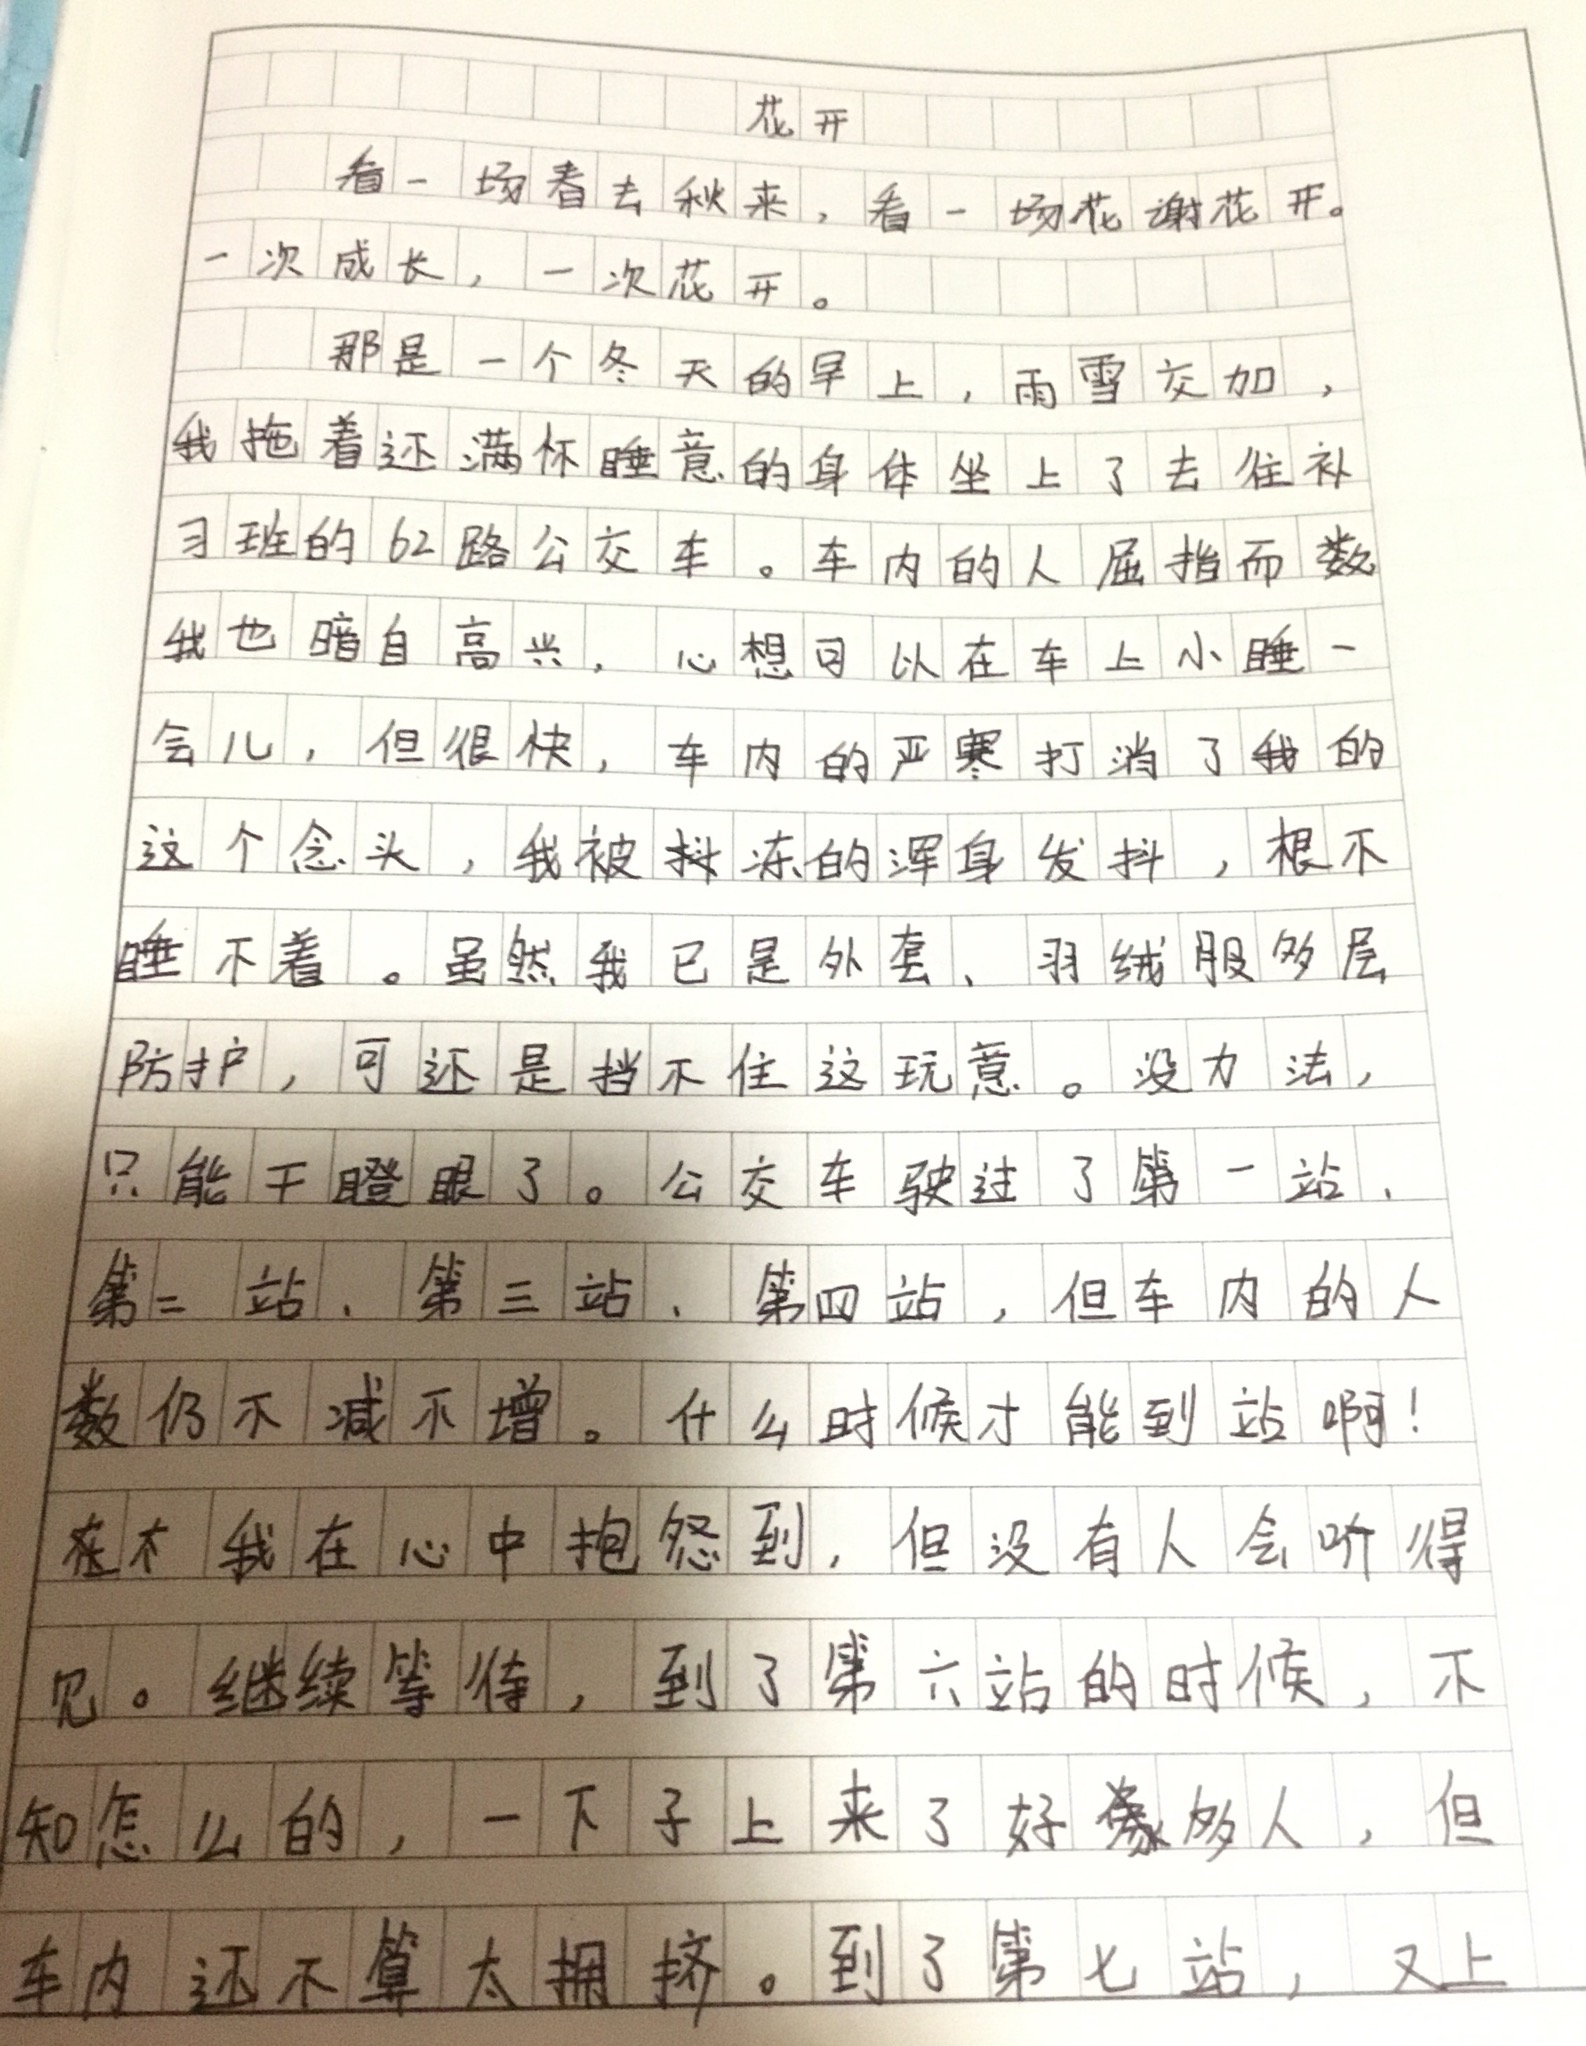 花开
看一场春去秋来，看一场花谢花开。
一次成长，一次花开。
那是一个冬天的早上，雨雪交加，
我拖着还满怀睡意的身体坐上了去往补
习班的62路公交车。车内的人屈指而数
我也暗自高兴，心想可以在车上小睡一
会儿，但很快，车内的严寒打消了我的
这个念头，我被抖冻的浑身发抖，根不
睡不着。虽然我已是外套、羽绒服多层
防护，可还是挡不住这玩意。没力法，
只能干瞪眼了。公交车驶过了第一站、
第二站、第三站、第四站，但车内的人
数仍不减不增。什么时候才能到站啊！
我在心中抱怨到，但没有人会听得
见。继续等待，到了第六站的时候，不
知怎么的，一下子上来了好多人，但
车内还不算太拥挤。到了第七站，又上